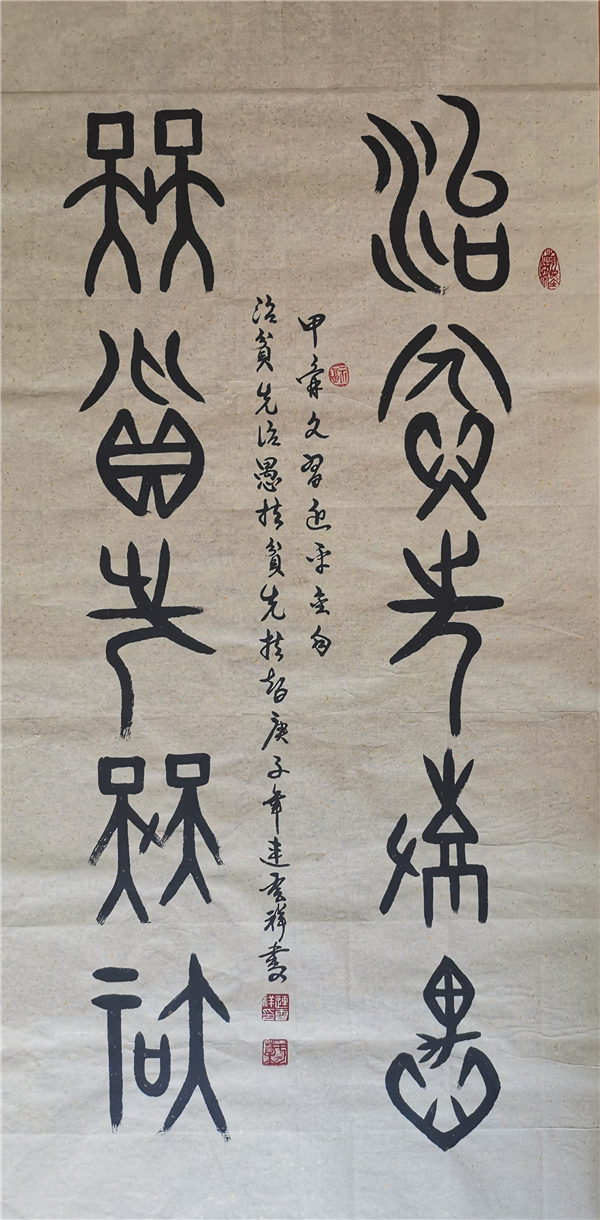 治貧先治愚
扶貧先扶智
甲骨文習近平金句
治貧先治愚扶貧先扶智庚子年連雲祥書